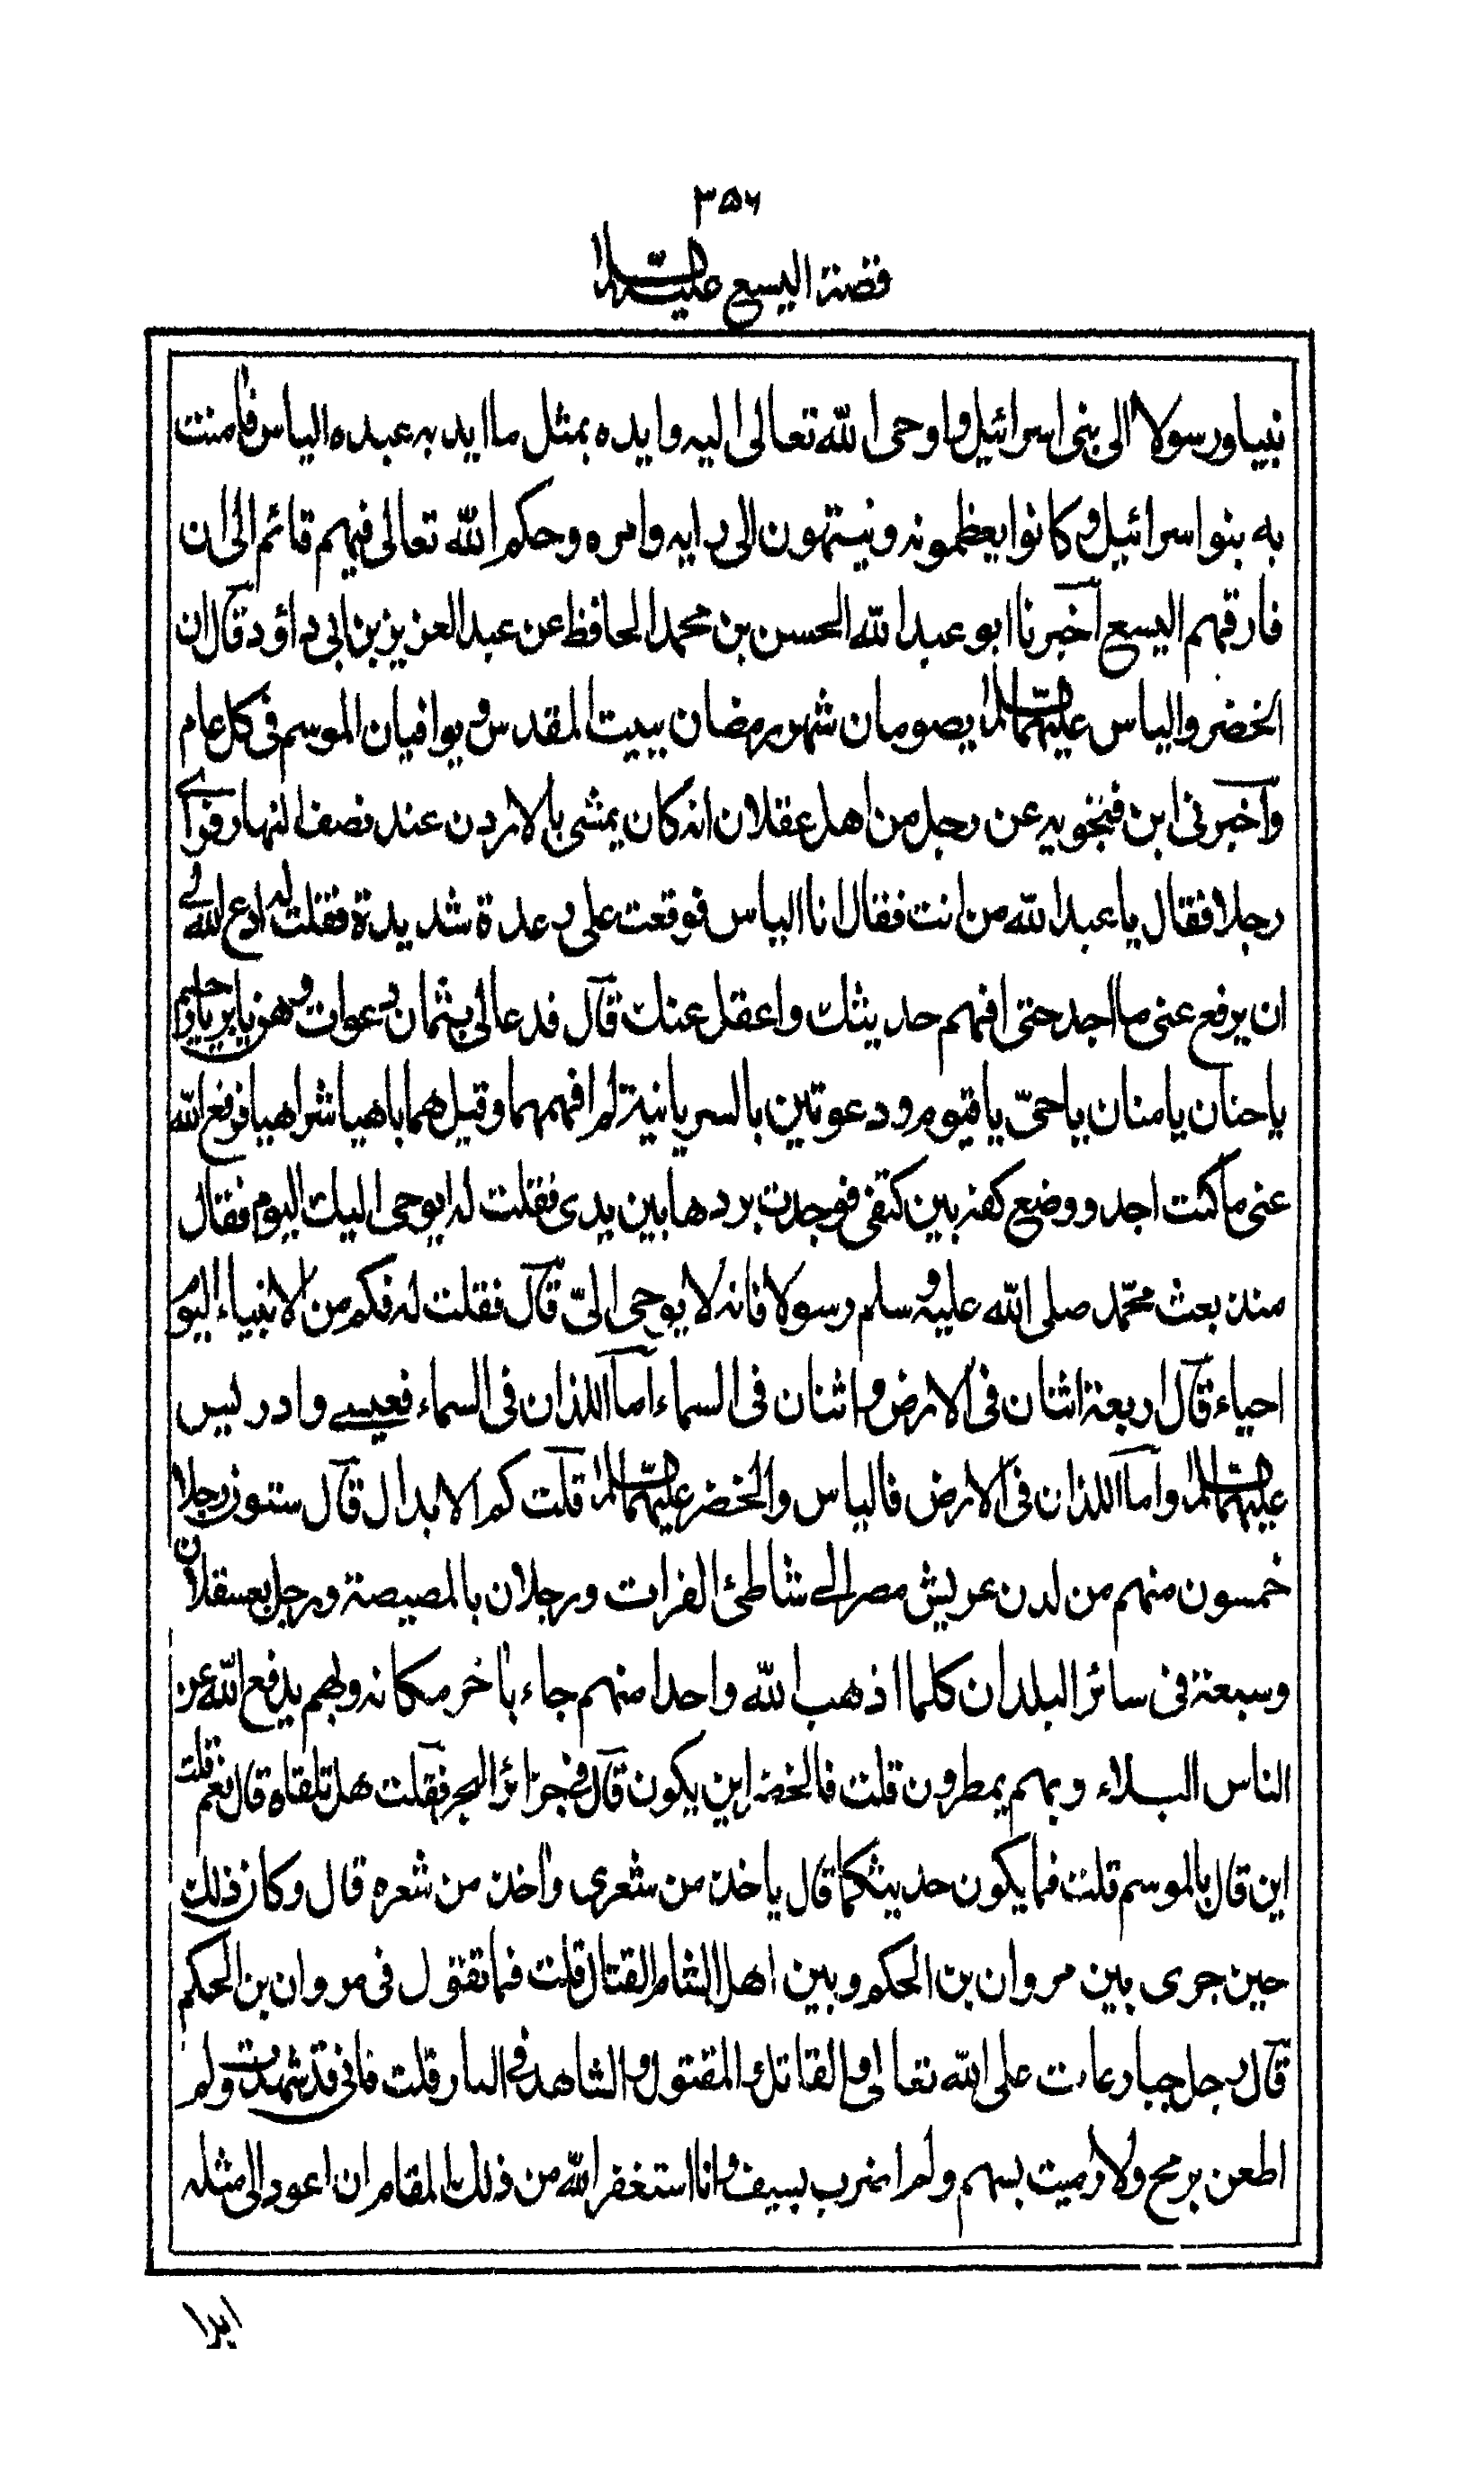 ٣٥٦
قصة اليسع عليه السلام
نبيا ورسولا الى بنى اسرائيل واوحى الله تعالى اليه وايده بمثل ما ايد به عبده الياس فامنت
به بنو اسرائيل وكانوا يعظمونه وينتهون الى رايه وامره وحكم الله تعالى فيهم قائم الى ان
فارقهم اليسع اخبرنا ابو عبد الله الحسن بن محمد الحافظ عن عبد العزيز بن ابى داؤد قال ان
الخضر والياس عليهما السلام يصومان شهر رمضان ببيت المقدس ويوافيان الموسم فى كل عام
واخبرنى ابن فنجويه عن رجل من اهل عقلان انه كان يمشى بالاردن عند نصف النهار فراى
رجلا فقال يا عبد الله من انت فقال انا الياس فوقعت على رعدة شديدة فقلت له ادع الله لى
ان يرفع عنى ما اجد حتى افهم حديثك واعقل عنك قال فدعا لى بثمان دعوات وهن يا بر يا رحيم
يا حنان يا منان يا حىّ يا قيوم ودعوتين بالسريانية لم افهمهما وقيل هما باهيا شراهيا فرفع الله
عنى ما كنت اجد ووضع كفه بين كتفى فوجدت بردها بين يدى فقلت له ايوحى اليك اليوم فقال
منذ بعث محمد صلى الله عليه وسلم رسولا فانه لا يوحى الىّ قال فقلت له فكم من الانبياء اليوم
احياء قال اربعة اثنان فى الارض واثنان فى السماء اما اللذان فى السماء فعيسے وادريس
عليهما السلام واما اللذان فى الارض فالياس والخضر عليهما السلام قلت كم الابدال قال ستون رجلا
خمسون منهم من لدن عريش مصر الے شاطئ الفرات ورجلان بالمصيصة ورجل بعسقلان
وسبعة فى سائر البلدان كلما اذهب الله واحدا منهم جاء باخر مكانه وبهم يدفع الله عن
الناس البلاء وبهم يمطرون قلت فالخضر اين يكون قال فى جزائر البحر فقلت هل تلقاه قال نعم قلت
اين قال بالموسم قلت فما يكون حديثكما قال ياخذ من شعرى واخذ من شعره قال وكان ذلك
حين جرى بين مروان بن الحكم وبين اهل الشام القتال قلت فما تقول فى مروان بن الحكم
قال رجل جبار عات على الله تعالى والقاتل والمقتول والشاهد فى النار قلت فانى قد شهدت ولم
اطعن برمح ولا رميت بسهم ولم اضرب بسيف وانا استغفر الله من ذلك المقام ان اعود الى مثله
ابدا